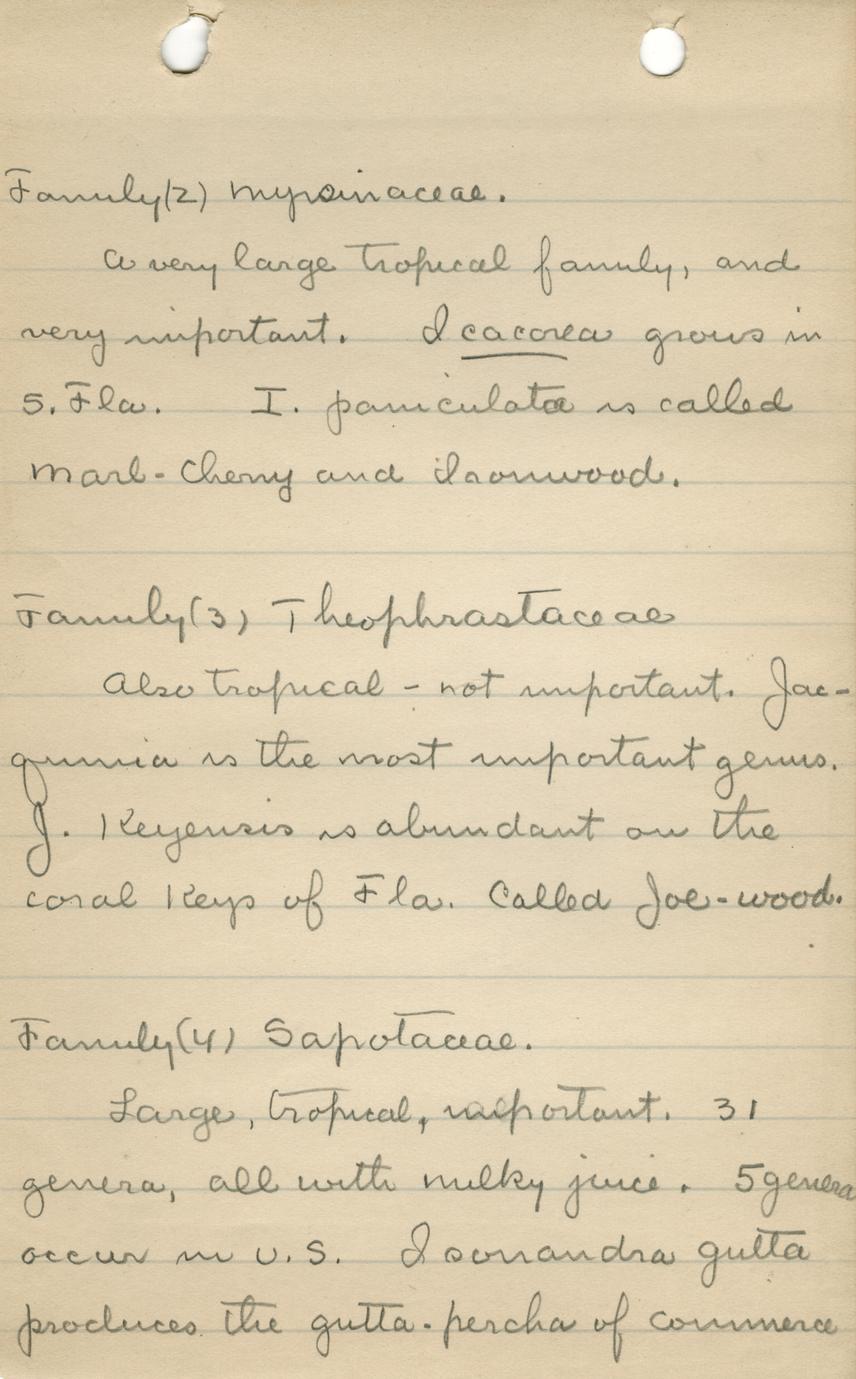 Family(2) Myrsinaceae.
A very large tropical family, and
very important. Icacorea grows in
S. Fla. I. paniculata is called
Marl-Cherry and Ironwood.
Family(3) Theophrastaceae
Also tropical - not important. Jac-
quinia is the most important genus.
J. Keyensis is abundant on the
coral Keys of Fla. Called Joe-wood.
Family(4) Sapotaceae.
Large, tropical, important. 31
genera, all with milky juice. 5 genera
occur in U.S. Isonandra gutta
produces the gutta-percha of commerce